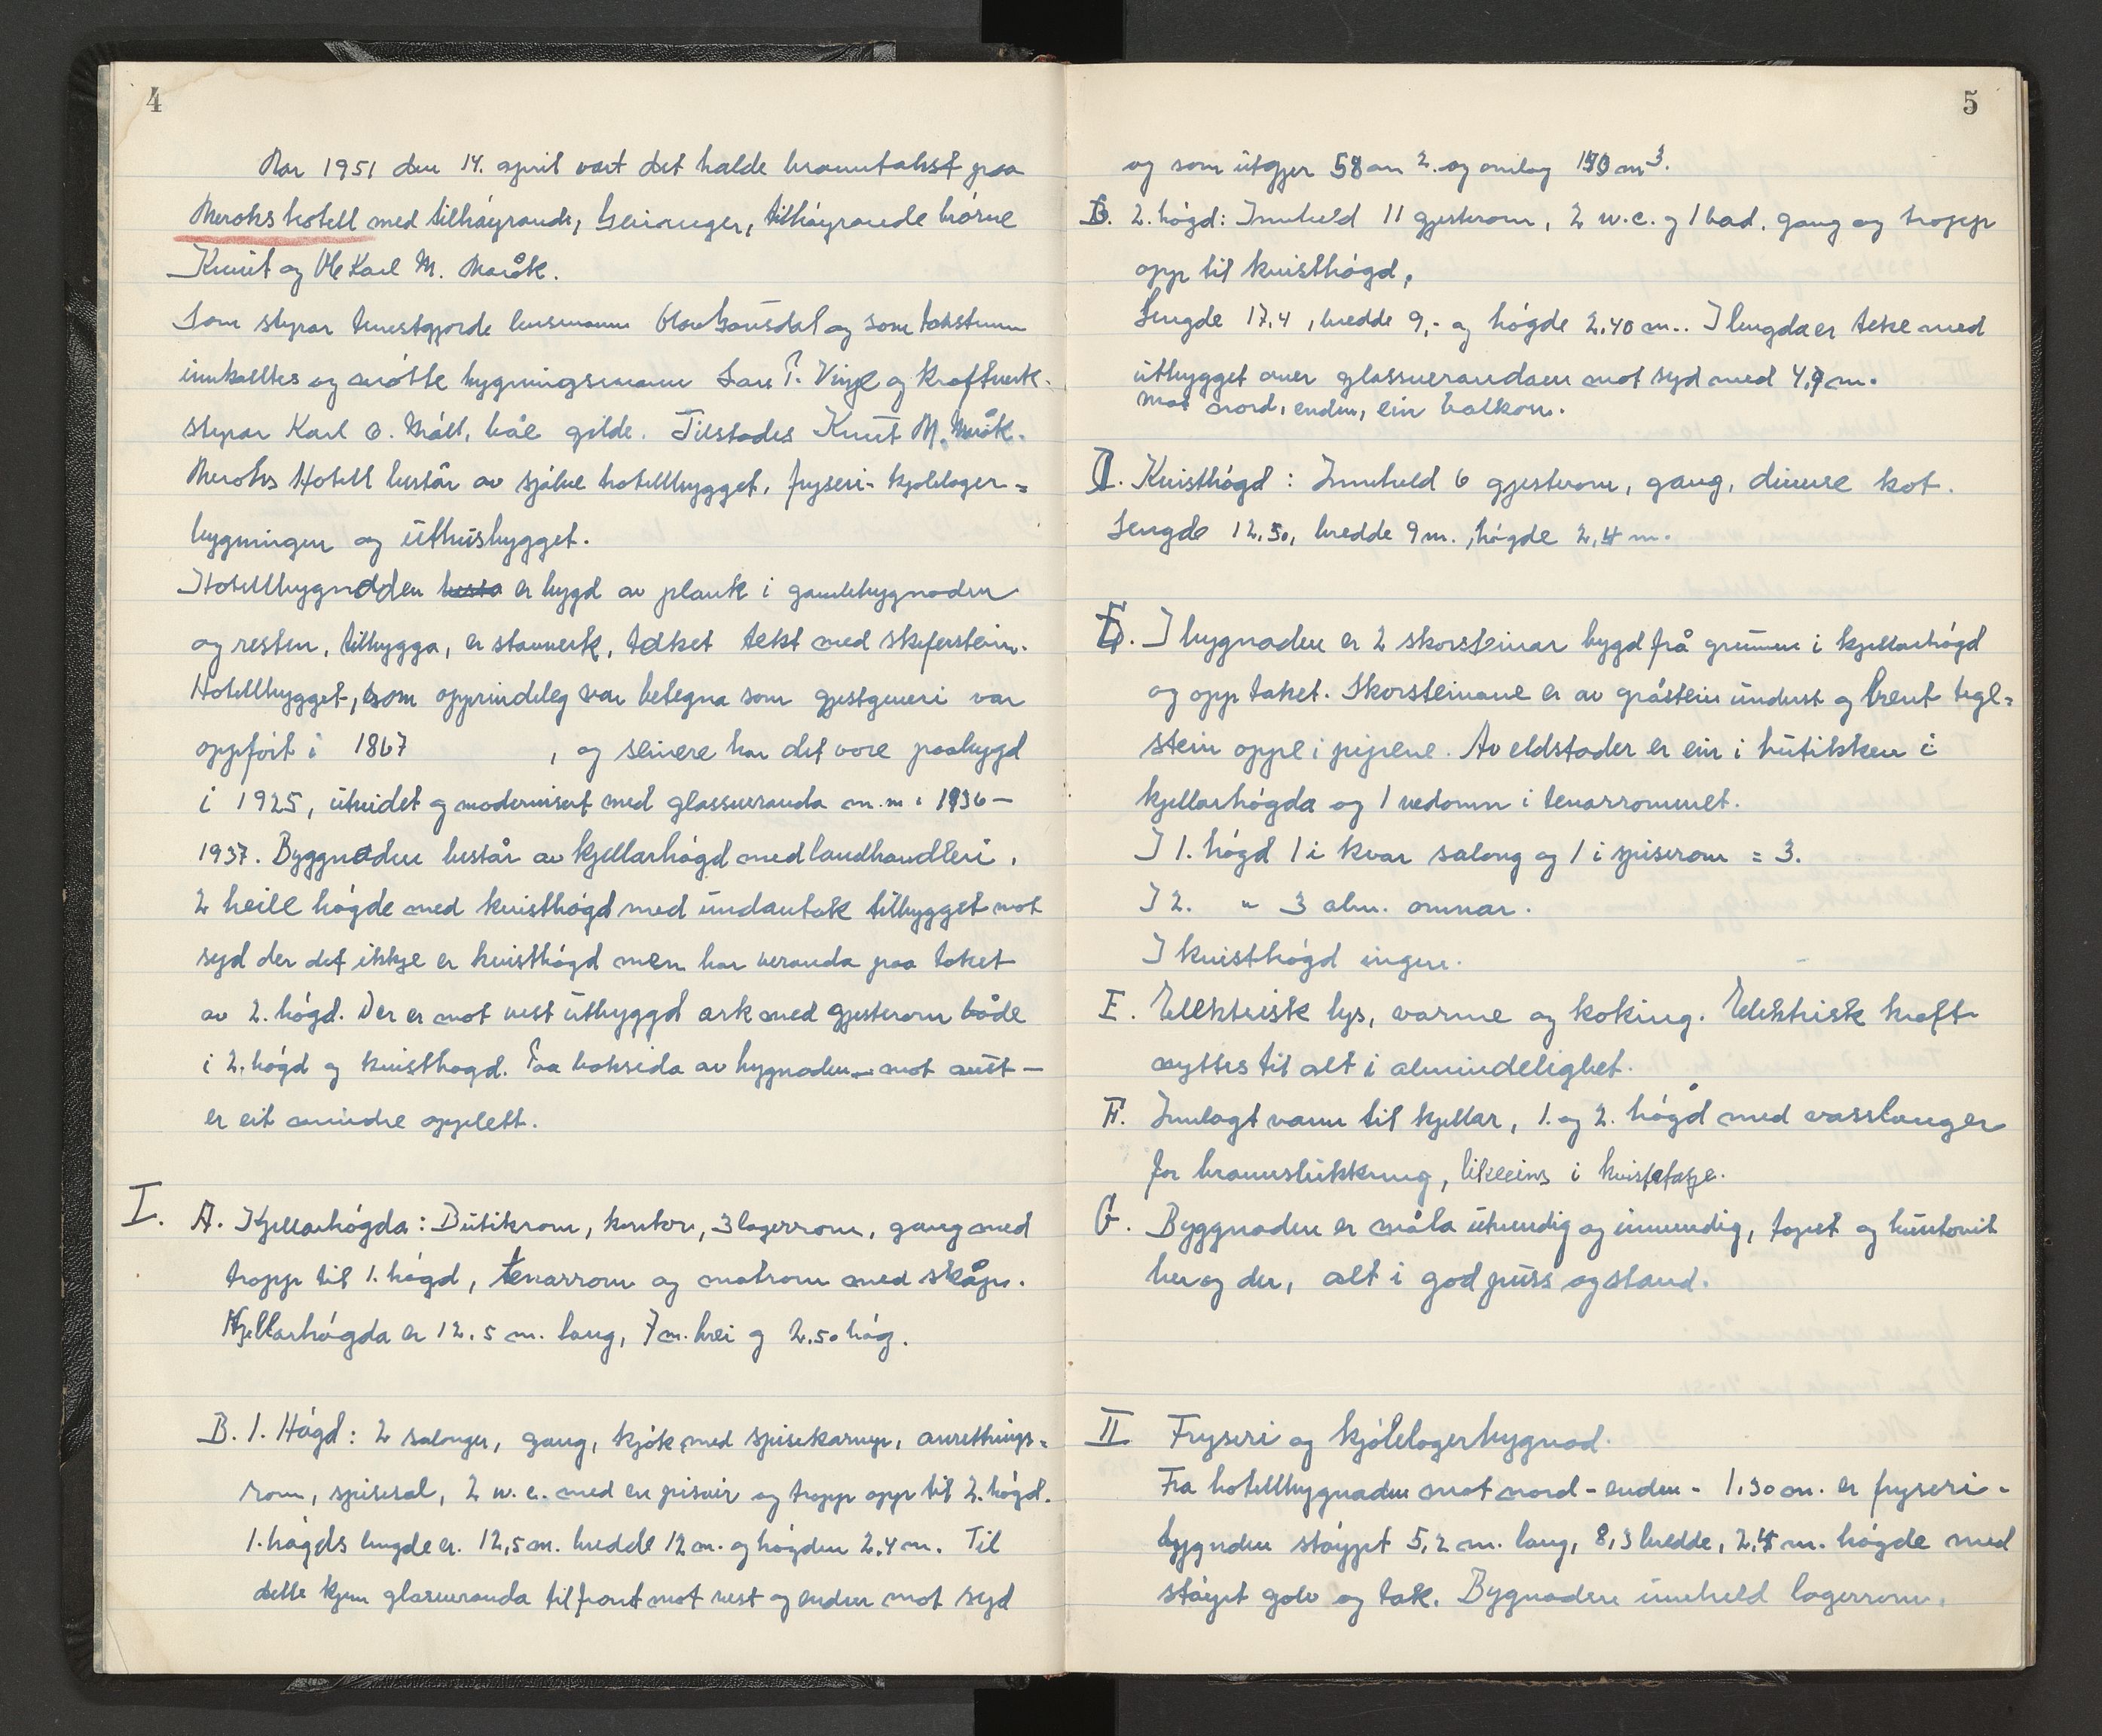 4
Aar 1951 den 14. april vart det halde branntakst paa
Meroks hotell med tilhøyrande, Geiranger, tilhøyrande brørne
Knut og Ole Karl M. Meråk.
Som styrar tenestgjorde lensmann Olav Gausdal og som takstmenn
innkalltes og møtte bygningsmann Lars P. Vinje og kraftverk-
styrar Karl O. Måll, båe gilde. Tilstades Knut M. Meråk.
Meroks Hotell består av sjølve hotellbygget, fryseri- kjølelager=
bygningen og uthusbygget.
Hotellbygnaden er bygd av plank i gamlebygnaden
og resten, tilbygga, er stavverk, taket tekt med skiferstein.
Hotellbygget, som opprindeleg var betegna som gjestgiveri var
oppført i 1867 , og seinere har det vore paabygd
i 1925, utvidet og modernisert med glassveranda m.m. i 1936 -
1937. Byggnaden består av kjellarhøgd med landhandleri,
2 heile høgde med kvisthøgd med undantak tilbygget mot
syd der det ikkje er kvisthøgd men har veranda paa taket
av 2. høgd. Der er mot vest utbyggd ark med gjesterom både
i 2. høgd og kvisthøgd. Paa baksida av bygnaden - mot aust -
er eit mindre opplett.
I. A. Kjellarhøgda: Butikrom, kontor, 3 lagerrom, gang med
trapp til 1. høgd, tenarrom og matrom med skåp.
Kjellarhøgda er 12.5 m. lang, 7 m. brei og 2.50 høg.
B. 1. Høgd: 2 salonger, gang, kjøk med spisekammer, anrettnings=
rom, spisesal, 2 w.c. med en pissoir og trapp opp til 2. høgd.
1. høgds lengde er. 12,5 m. bredde 12 m. og høgden 2.4 m. Til
dette kjem glasveranda til front mot vest og enden mot syd
5
og som utgjer 58 m 2. og omlag 190 m3.
2. høgd: Inneheld 11 gjesterom, 2 w.c. og 1 bad, gang og trapp
opp til kvisthøgd,
Lengde 17,4, bredde 9,- og høgde 2,40 m.. I lengda er teke med
utbygget over glassverandaen mot syd med 4,9 m.
mot nord, enden, ein balkon.
Kvisthøgd: Inneheld 6 gjesterom, gang, diverse kot.
Lengde 12,50, bredde 9 m., høgde 2,4 m.
I bygnaden er 2 skorsteinar bygd frå grunnen i kjellarhøgd
og opp taket. Skorsteinane er av gråstein underst og brent tegl=
stein oppe i pipene. Av eldstader er ein i butikken i
kjellarhøgda og 1 vedomn i tenarrommet.
I 1. høgd 1 i kvar salong og 1 i spiserom = 3.
I 2. " 3 alm. omnar.
I kvisthøgd ingen.
E. Elektrisk lys, varme og koking. Elektrisk kraft
nyttes til alt i almindelighet.
F. Innlagt vann til kjellar, 1. og 2. høgd med vasslanger
for brannslukking, likeeins i kvistetasje.
G. Byggnaden er måla utvendig og innvendig, tapet og huntonit
her og der, alt i god puss og stand.
II Fryseri og kjølelagerbygnad.
Fra hotellbygnaden mot nord - enden - 1,30 m. er fryseri-
bygnden støypt 5,2 m. lang, 8,3 bredde, 2,4 m. høgde med
støypt golv og tak. Bygnaden inneheld lagerrom,